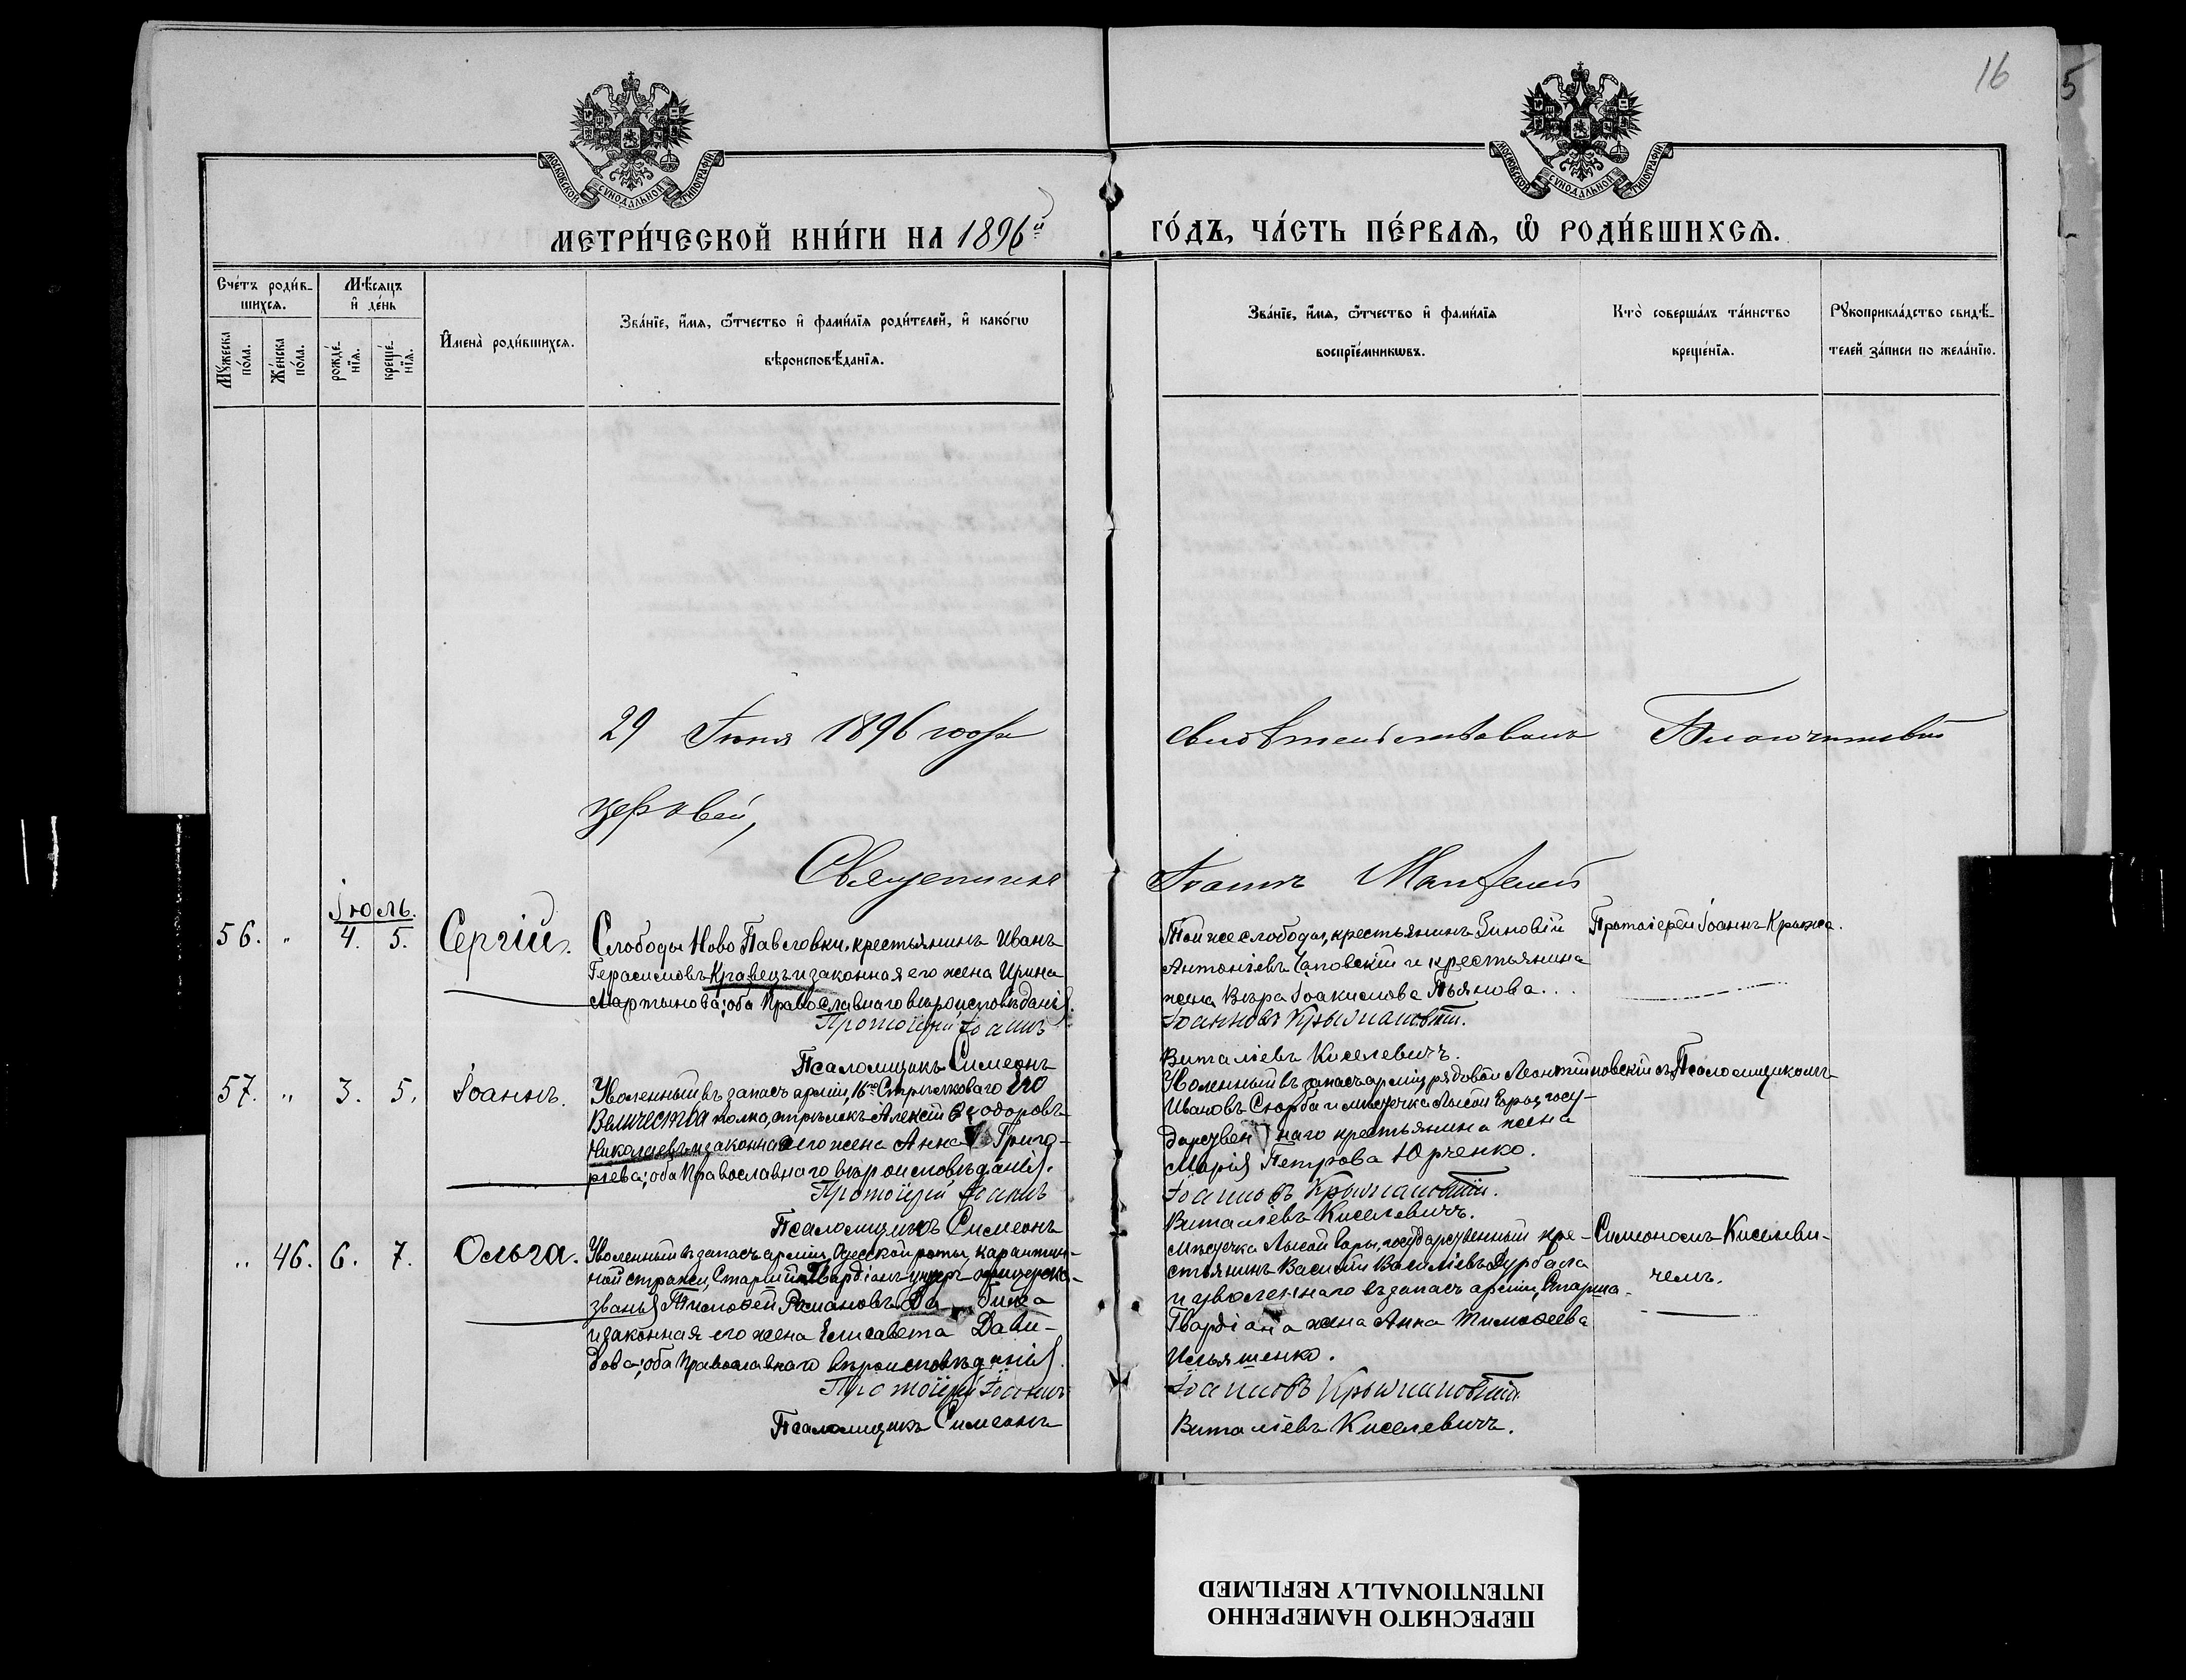 16
5
МОСКОВСКОЙ СУНОДАЛЬНОЙ ТИПОГРАФІИ
МОСКОВСКОЙ СУНОДАЛЬНОЙ ТИПОГРАФІИ
МЕТРИ́ЧЕСКОЙ КНИ́ГИ НА 1896й
ГО́ДЪ, ЧА́СТЬ ПЕ́РВАЯ, Ѡ РОДИ́ВШИХСЯ.
Сче́тъ роди́в-
шихся.
Мѣ́сяцъ
и де́нь
Мꙋжеска по́ла.
Же́нска по́ла.
рожде́-
нїя.
креще́-
нїя.
Имена̀ роди́вшихся.
Зва́нїе, и́мя, ѻ҆́тчество и фами́лїя роди́телей, и како́гѡ
вѣроисповѣ́данїя.
Зва́нїе, и́мя, ѻ҆́тчество и фами́лїя
воспрїе́мникѡвъ.
Кто̀ соверша́лъ та́инство
креще́нїя.
Рꙋкоприкла́дство свидѣ́-
телей за́писи по жела́нїю.
29 Іюня 1896 года
свидѣтельствовалъ Благочинный
церквей,
Священникъ
Іоаннъ
Іюль.
56. „ 4. 5. Сергій.
Слободы Ново Павловки, крестьянинъ Иванъ
Герасимовъ Кравецъ и законная его жена Ирина
Мартынова; оба Православнаго вѣроисповѣданія.
Протоіерей Іоаннъ
Псаломщикъ Симеонъ
Той же слободы, крестьянинъ Зиновій
Антоніевъ и крестьянина
жена Вѣра Іоакимова Пьянова...
Іоанновъ Крыжановскій.
Виталіевъ Киселевичъ.
Протоіерей Іоаннъ Крыжа-
57. „ 3. 5. Іоаннъ.
Уволенный въ запасъ арміи, 16го Стрѣлковаго Его
Величества полка, стрѣлокъ Алексій Ѳеодоровъ
Николаевъ и законная его жена Анна Григо-
рьева; оба Православнаго вѣроисповѣданія.
Протоіерей Іоаннъ
Псаломщикъ Симеонъ
Уволенный въ запасъ арміи, рядовой Леонтій
Ивановъ Скорба и мѣстечка Лысой Горы, госу-
дарствен наго крестьянина жена
Марія Петрова Юрченко.
Іоанновъ Крыжановскій.
Виталіевъ Киселевичъ.
новскій съ Псаломщикомъ
„ 46. 6. 7. Ольга.
Уволенный въ запасъ арміи, Одесской роты, карантин-
ной стражи, Старшій Гвардіанъ унтеръ офицерска-
званія Тимоѳей Романовъ
и законная его жена Елисавета Дави-
дова; оба Православнаго вѣроисповѣданія.
Протоіерей Іоаннъ
Псаломщикъ Симеонъ
Мѣстечка Лысой Горы, государственный кре-
стьянинъ Василій Василіевъ Дурбала
и уволеннаго въ запасъ арміи, Старша-
Гвардіана жена Анна Тимоѳеева
Ильяшенко.
Іоанновъ Крыжановскій
Виталіевъ Киселевичъ.
Симеономъ Киселеви-
чемъ.
ПЕРЕСНЯТО НАМЕРЕННО
INTENTIONALLY REFILMED